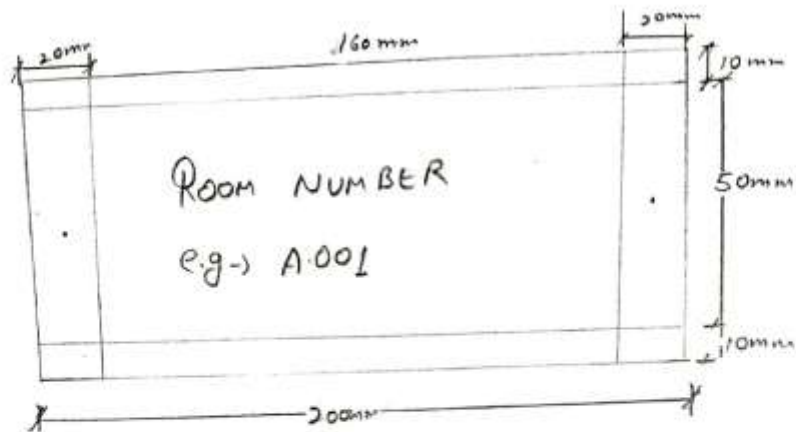 20mm
160mm
20mm
10mm
50mm
10mm
ROOM NUMBER
e.g-> A.001
200mm